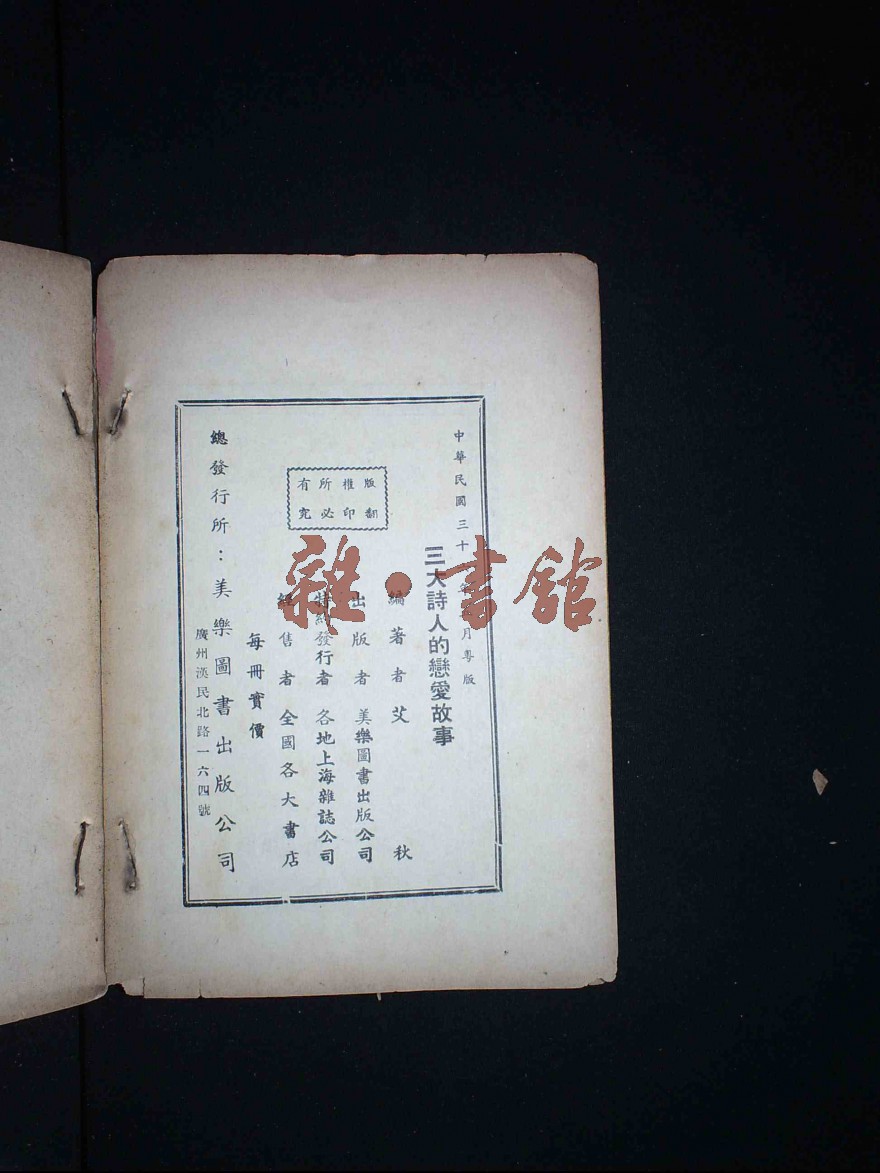 中華民國三十 月粵版
三大詩人的戀愛故事
版權所有
翻印必究
編著者 艾秋
出版者 美樂圖書出版公司
特約發行者 各地上海雜誌公司
經售者 全國各大書店
每冊實價
總發行所：美樂圖書出版公司
廣州漢民北路一六四號
雜·書館